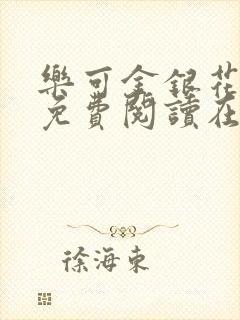 樂可金銀花
免費閱讀在
徐海東